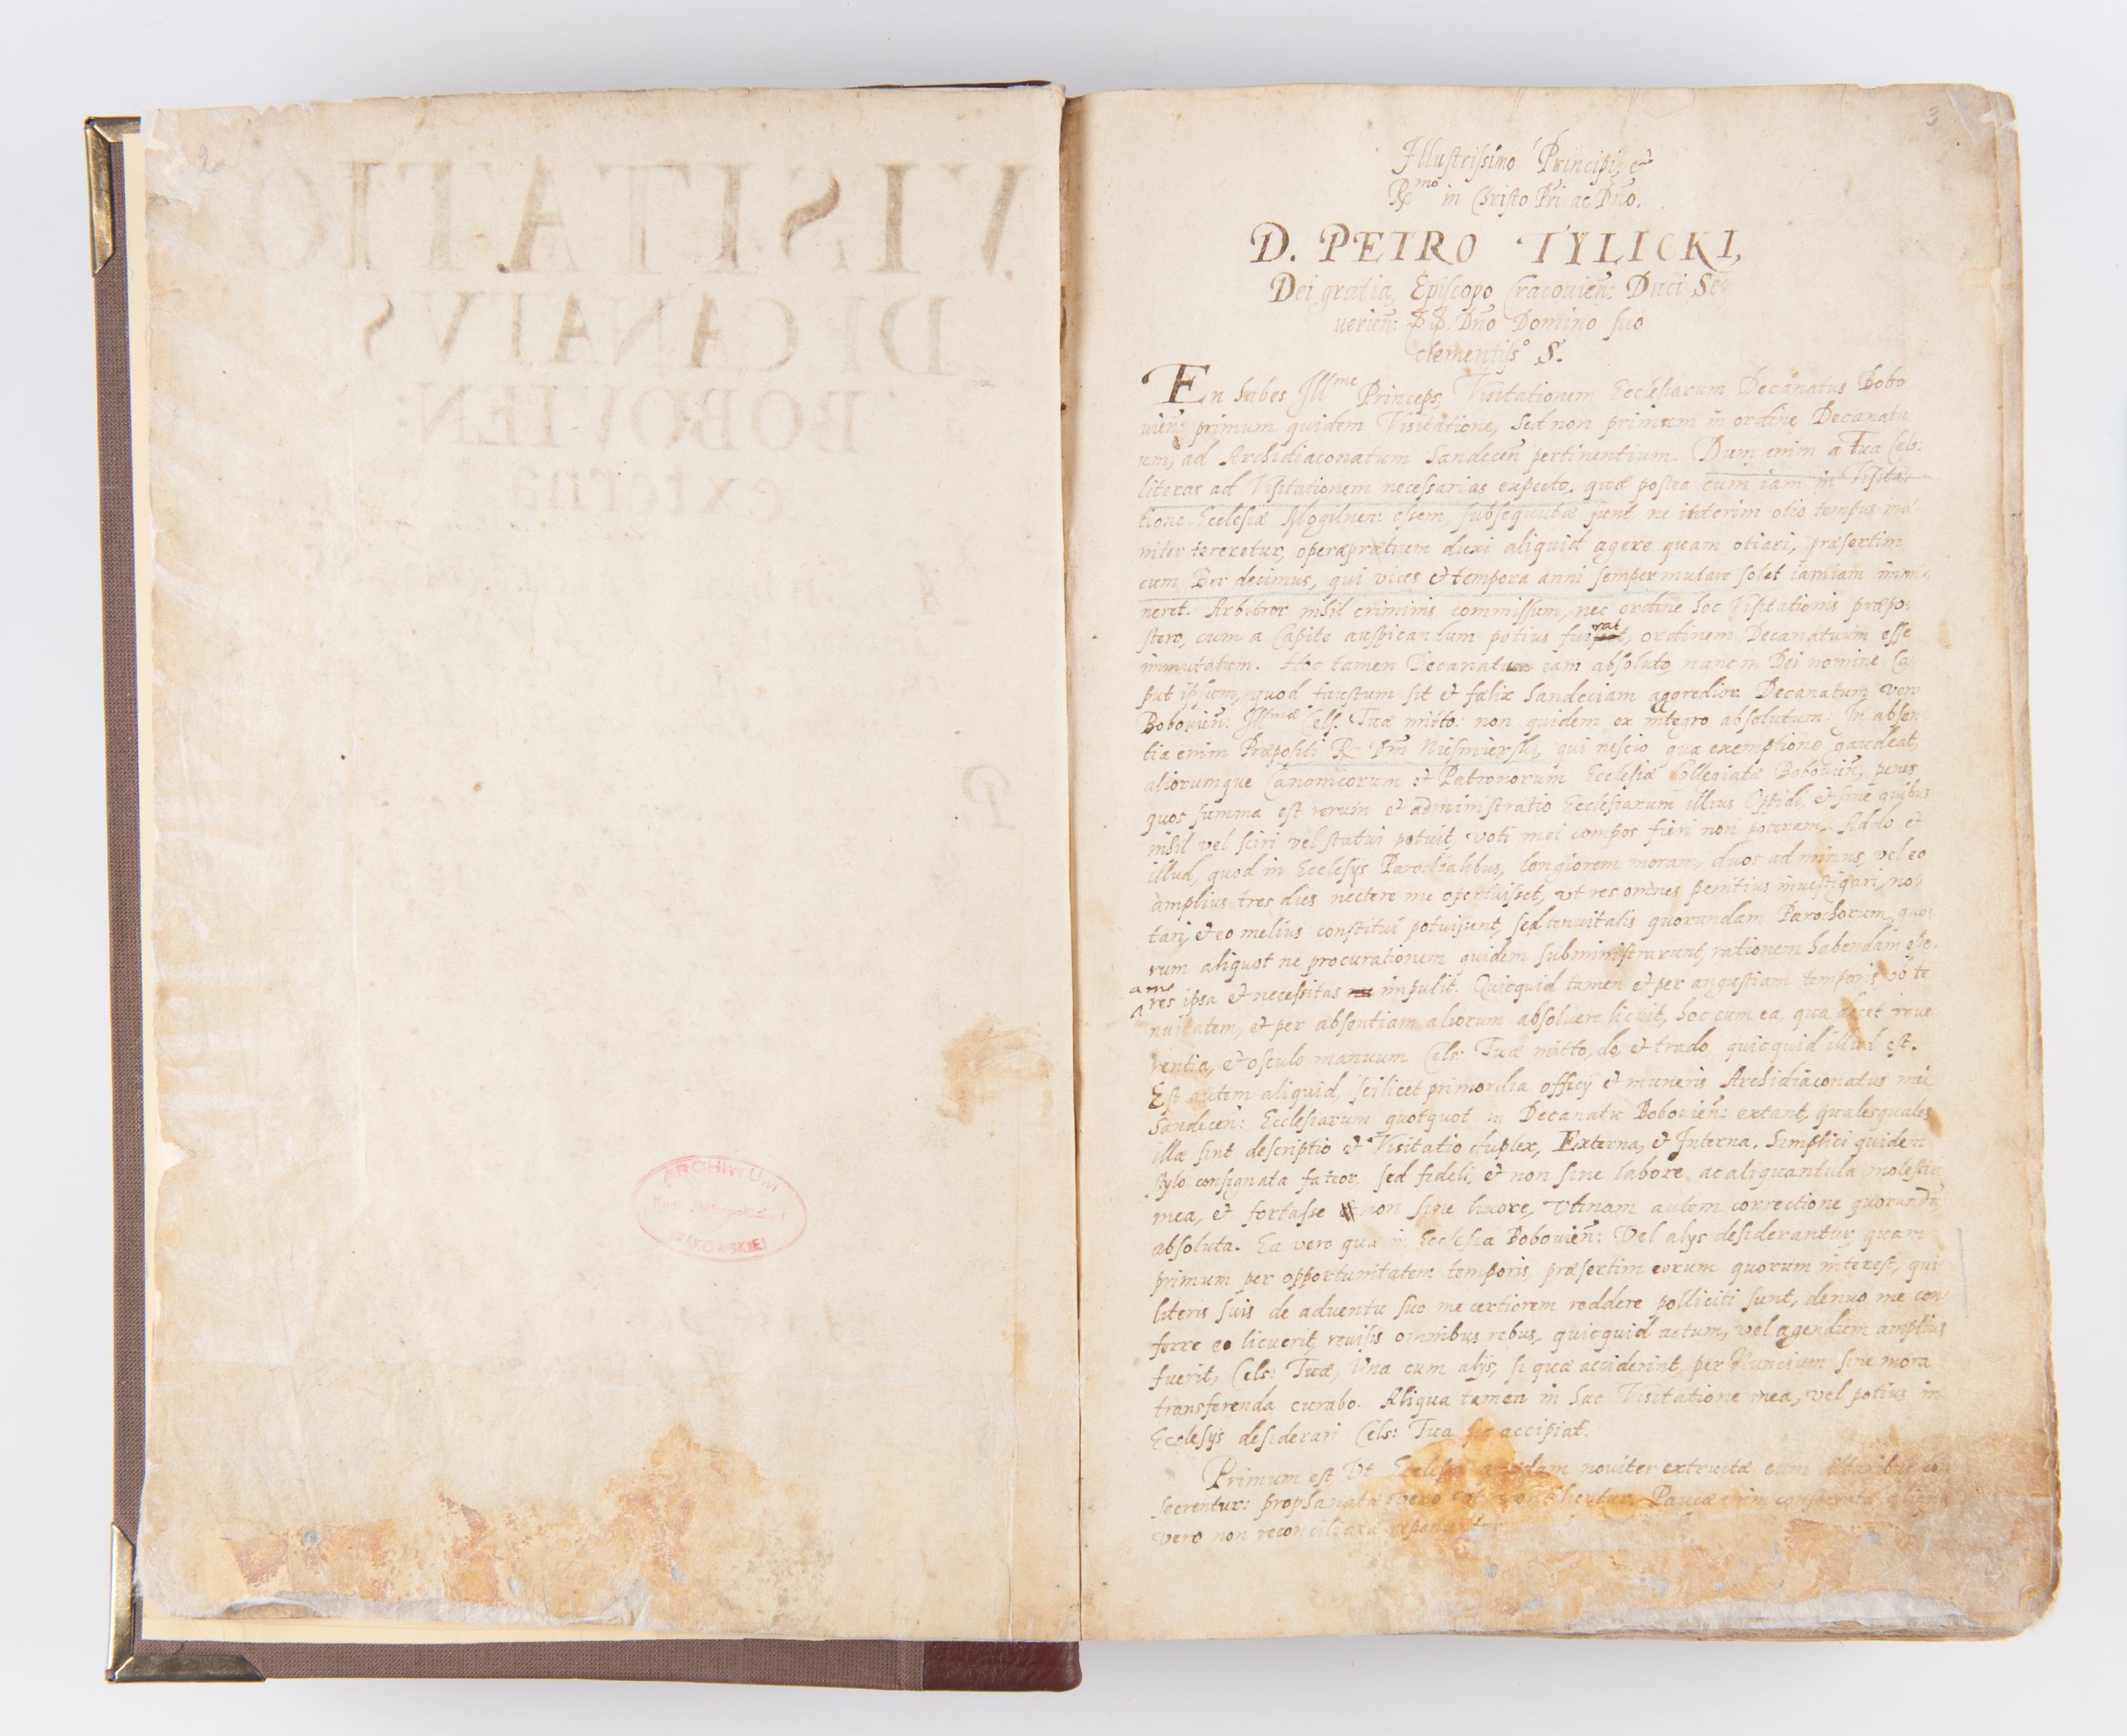 2
VISITATIO
DECANATVS
BOBOVIEN:
externa
ARCHIWUM
3
Illustrissimo Principi, &
R.mo in Christo Pri ac Dno.
D. PETRO TYLICKI,
Dei gratia, Episcopo Cracouien: Duci Se-
uerien: Dno Domino suo
clementiss° S.
En habes Ill.me Princeps, Visitationem Ecclesiarum Decanatus Bobo
uien: primum quidem Visitatione, sed non primum in ordine Decanatu
um, ad Archidiaconatum Sandecen pertinentium. Dum enim a Tua Cels:
literas ad Visitationem necessarias expecto, quæ postea cum iam in Visita-
tione Ecclesiæ Mogilnen: essem, subsequutæ sunt, ne interim otio tempus ina-
niter tereretur, operæpretium duxi aliquid agere quam otiari, præsertim
cum Ber decimus, qui vices & tempora anni semper mutare solet iamiam immi-
neret. Arbitror nihil criminis commissum, nec ordine hoc Visitationis præpo-
stero, cum a Capite auspicandum potius fuerat, ordinem Decanatuum esse
immutatum. Hoc tamen Decanatu iam absoluto, nunc in Dei nomine Ca-
put ipsum, quod faustum sit & fælix Sandeciam aggredior. Decanatum vero
Bobouien: Ill.mæ Cels. Tuæ mitto: non quidem ex integro absolutum: In absen-
tia enim Præpositi R. Dni Niesmierski, qui nescio qua exemptione gaudeat,
aliorumque Canonicorum & Patronorum Ecclesiæ Collegiatæ Bobouien, penes
quos summa est rerum & administratio Ecclesiarum illius Oppidi, & sine quibus
nihil vel sciri vel statui potuit, voti mei compos fieri non poteram. Addo &
illud, quod in Ecclesijs Parochialibus, longiorem moram, duos ad minus, vel eo
amplius tres dies nectere me oportuisset, vt res omnes penitius inuestigari, no-
tari, & eo melius constitui potuissent, sed tenuitatis quorundam Parochorum, quo-
rum aliquot ne procurationem quidem subministrarunt, rationem habendam esse.
a me
res ipsa & necessitas impulit. Quicquid tamen & per angustiam temporis, ob te
nuitatem, & per absentiam aliorum absoluere licuit, hoc cum ea, qua decet reue
rentia, & osculo manuum Cels: Tuæ mitto, do, & trado, quicquid illud est.
Est autem aliquid, scilicet primordia officij & muneris Archidiaconatus mei
Sandecen: Ecclesiarum quotquot in Decanatu Bobouien: extant, qualesquales
illæ sint descriptio & Visitatio duplex, Externa, & Interna. Simplici quidem
stylo consignata fateor, sed fideli, & non sine labore, ac aliquantula molestia
mea, & fortasse non sine liuore, Vtinam autem correctione quorundā
absoluta. Ea vero quæ in Ecclesia Bobouien: Vel alijs desiderantur, quam
primum per opportunitatem temporis, præsertim eorum quorum interest, qui
literis suis de aduentu suo me certiorem reddere polliciti sunt, denuo me con-
ferre eo licuerit, reuisis omnibus rebus, quicquid actum, vel agendum amplius
fuerit, Cels: Tuæ, Vna cum alijs, si quæ acciderint, per Nuncium sine mora
transferenda curabo. Aliqua tamen in hac Visitatione mea, vel potius in
Ecclesijs desiderari Cels: Tua sic accipiat.
Primum est Vt Ecclesiæ quædam nouiter extructæ cum Altaribus con
secrentur: prophanatæ vero reconcilientur. Paucæ enim consecratæ
vero non reconciliatæ